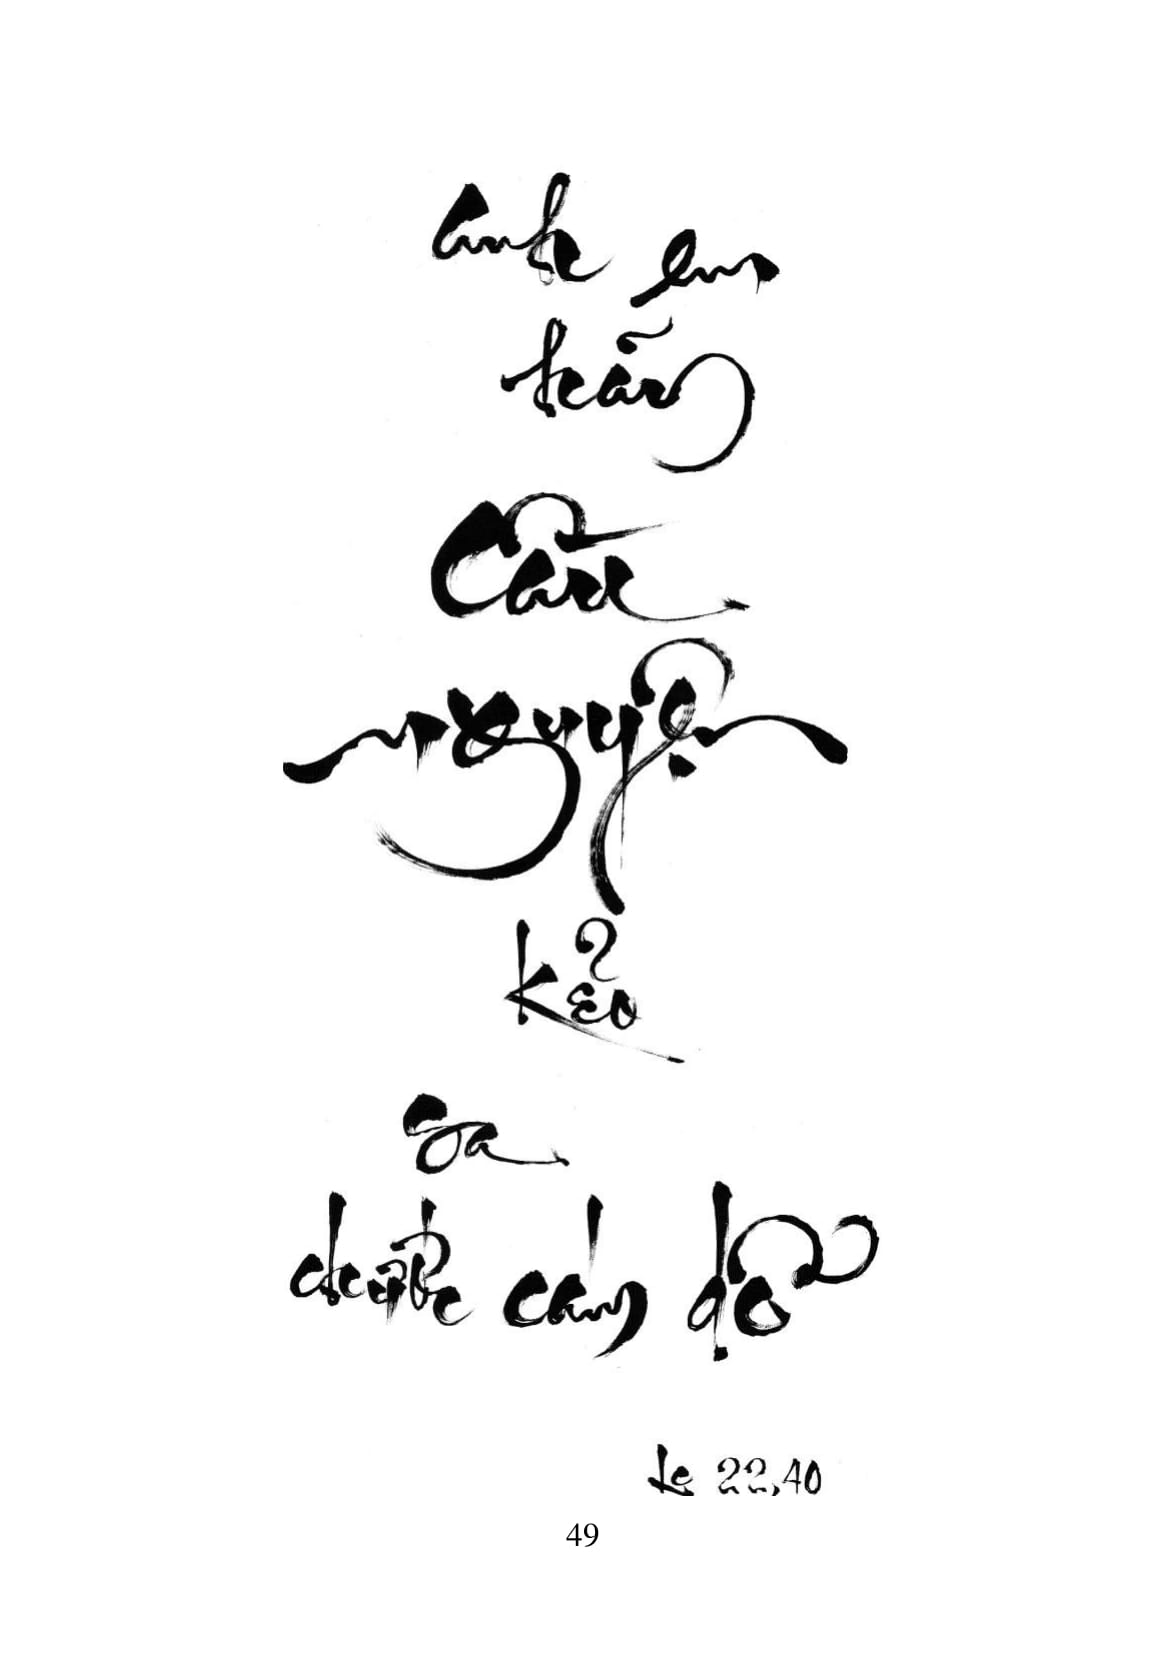 anh em
hãy
Cầu
nguyện
kẻo
sa
chước cám dỗ
Lc 22,40
49